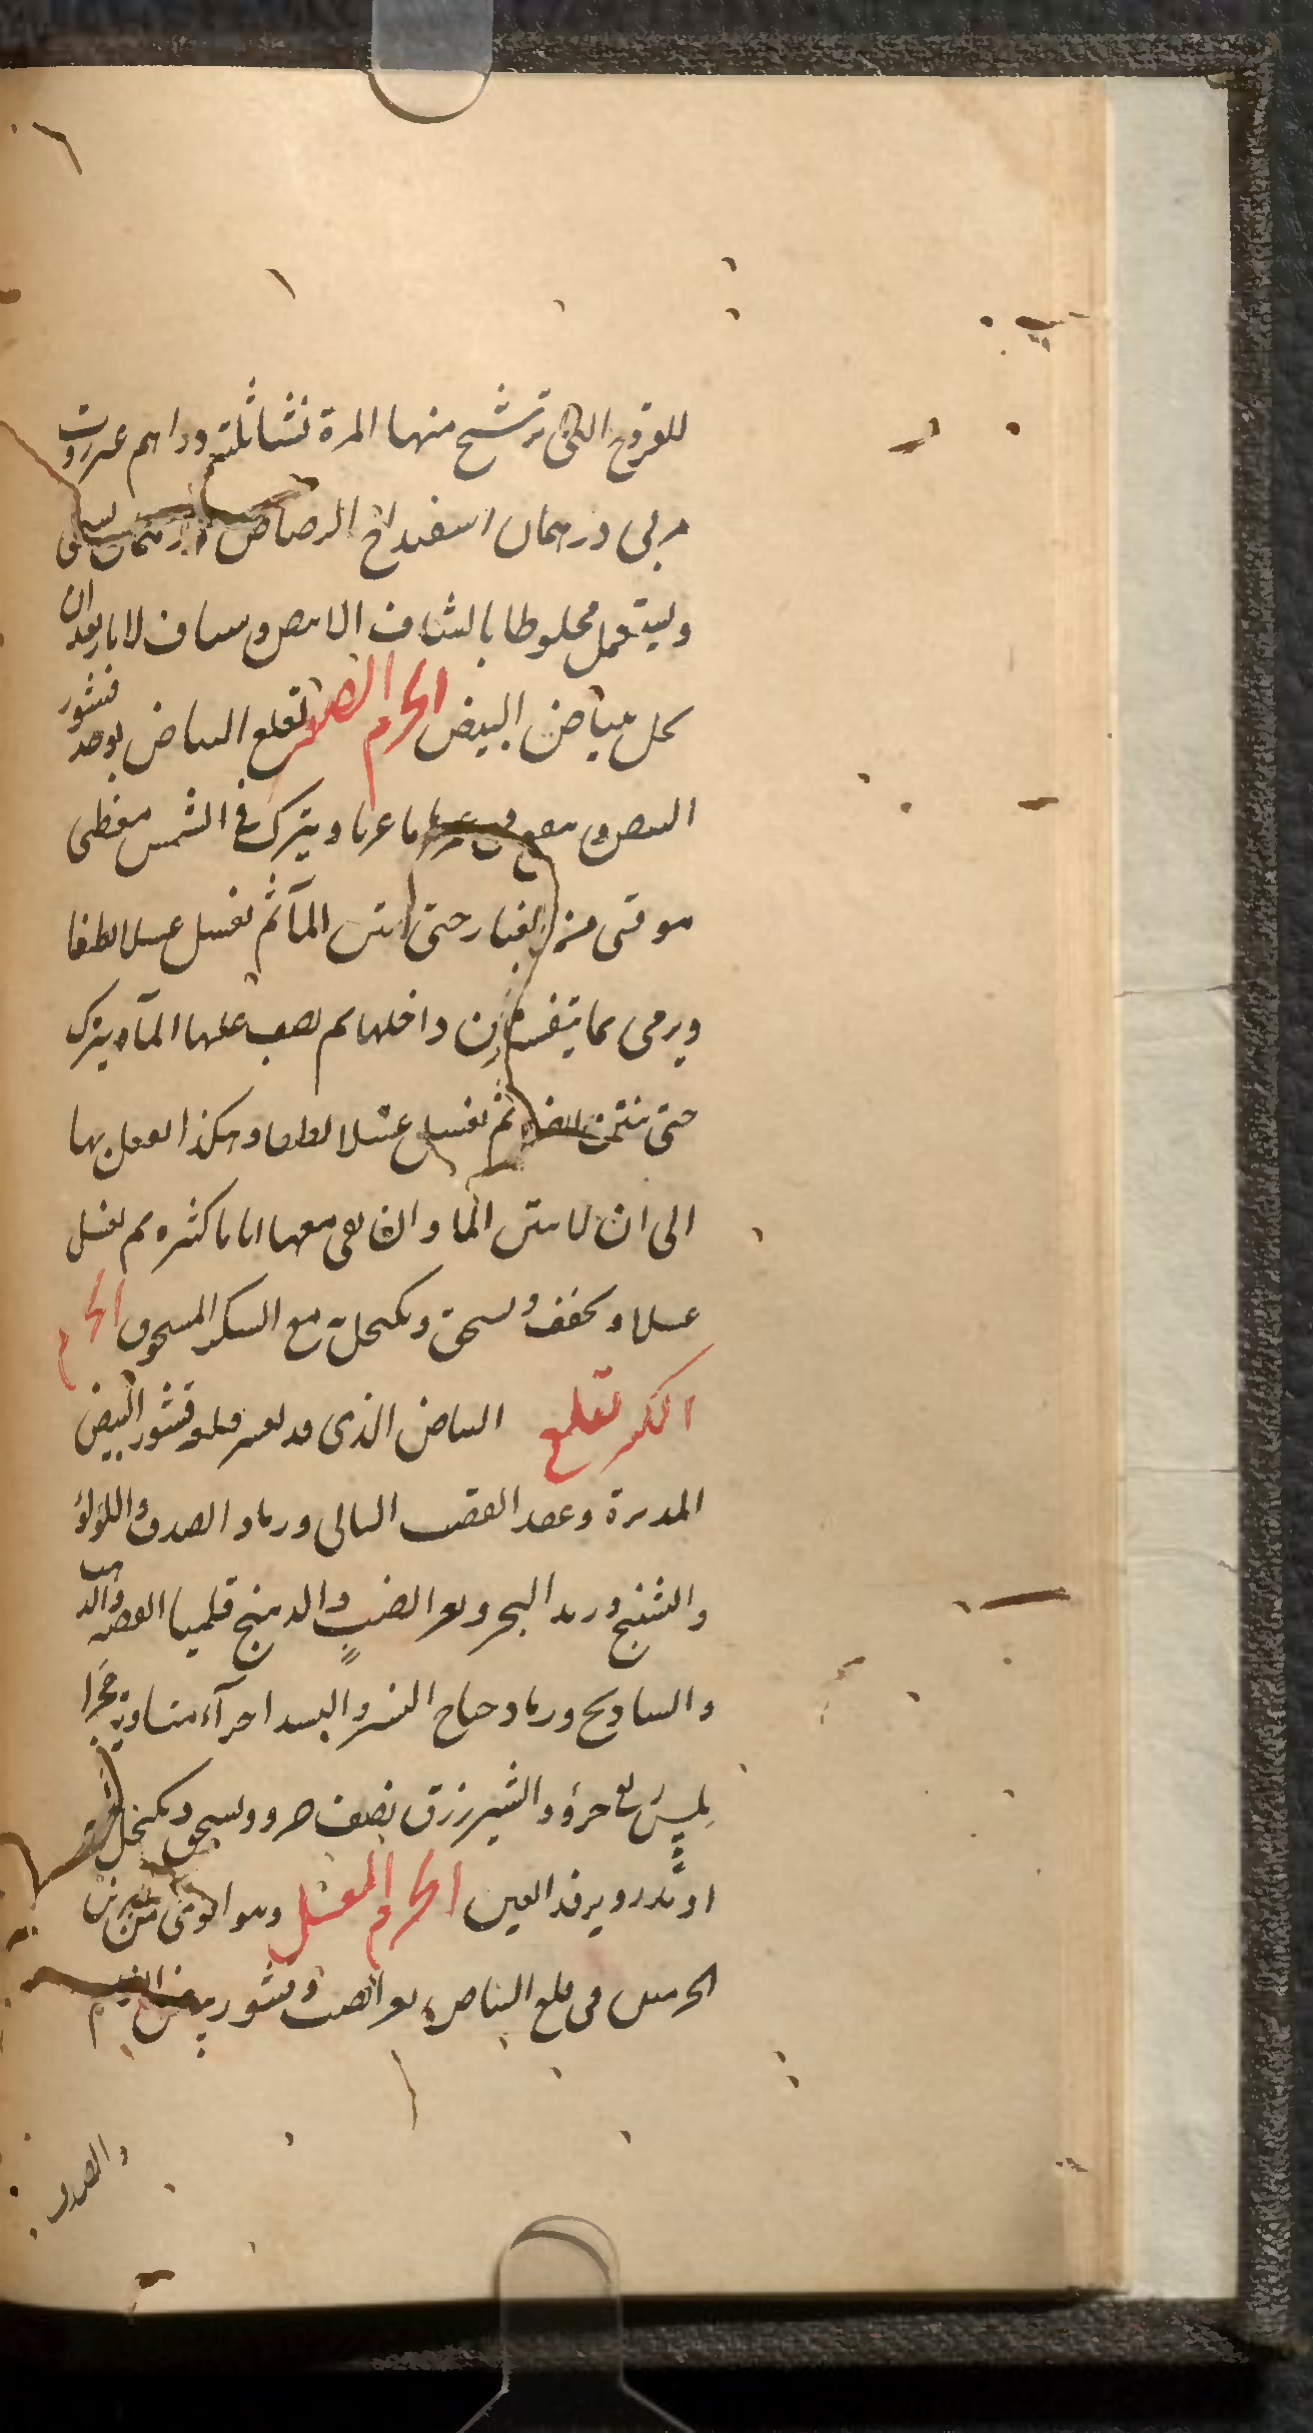 للقروح التي ترشح منها المرة نشا ثلثة دراهم عنزروت
مربى درهمان اسفيداج الرصاص درهمان
وليستعمل مخلوطا بالشاف الابيض وساف لابار بعد ان
يحل ببياض البيض الاحرم الصغير لقلع البياض يوخذ قشور
البيض وينقع في ويترك في الشمس مغطى
موقى من الغبار حتى ينتن المآ ثم يغسل غسلا لطيفا
ويرمى بما يتقشر من داخلها ثم يصب عليها المآ ويترك
حتى ينتن ايضا ثم يغسل غسلا لطيفا وهكذا يفعل بها
الى ان لا ينتن الما وان بقى معها اياما كثيره ثم يغسل
غسلا ويجفف ويسحق ويكتحل به مع السكر المسحوق الاحرم
الكبير لقلع البياض الذى قد يعسر قلعه قشور البيض
المدبرة وعقد القصب البالى ورماد الصدف واللؤلؤ
والشنج وزبد البحر وبعر الضب والدهنج قلميا الفضه والذهب
والسادنج ورماد جناح النسر والبسد اجزآء متساوية
ربع جزؤ والشيرزق نصف جزو ويسحق ويكتحل
او يذر ويرفد العين الاحرم المعسل وهو اقوى من
الاحرمين في قلع البياض بعر الضب وقشور بيض النعام
والصدف